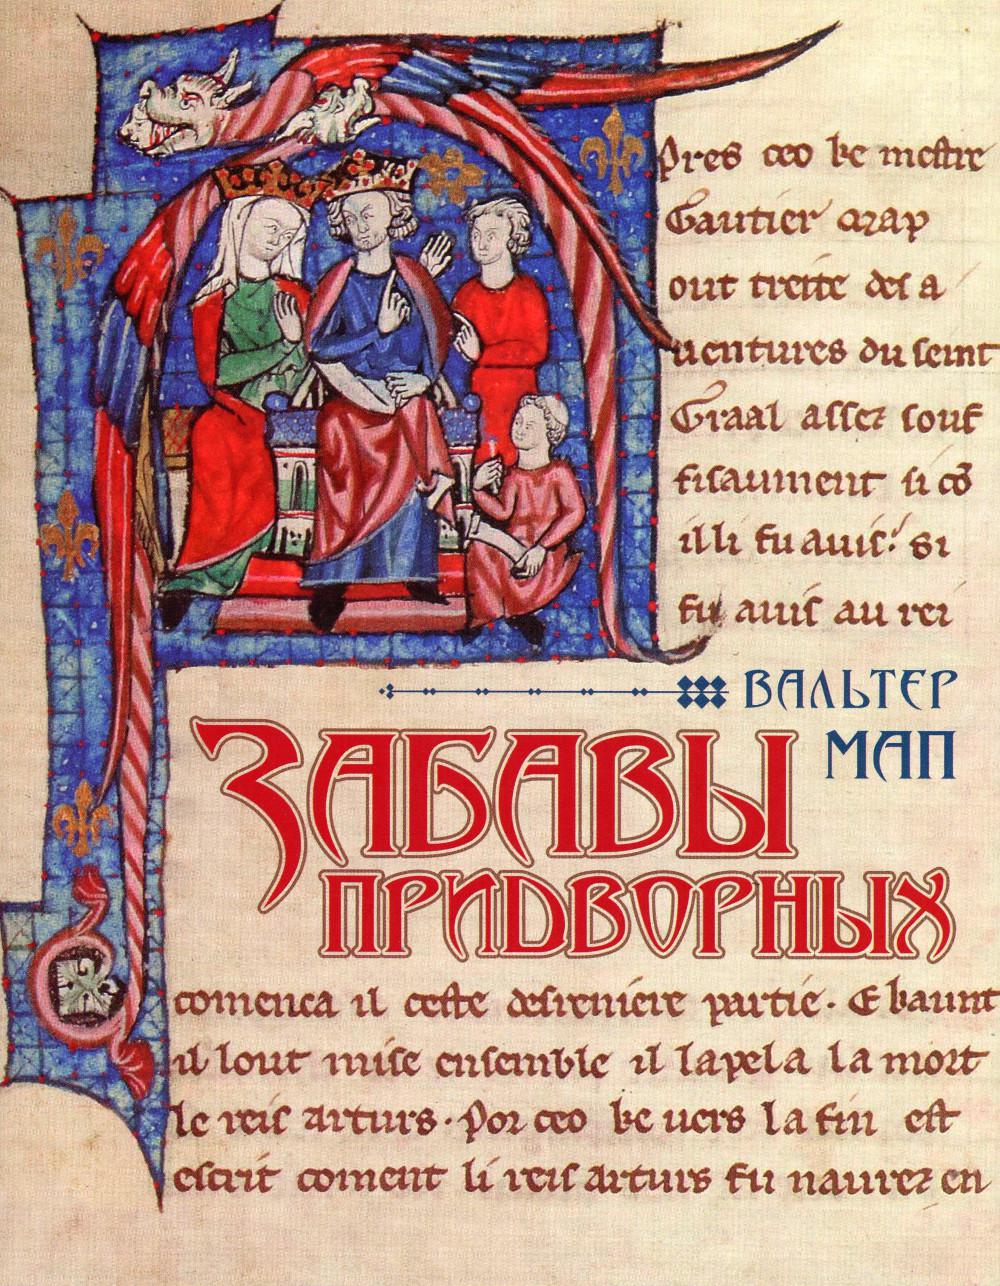 Pres ceo ke mestre
Gautier map
out treite des a
uentures du seint
Graal assez souf
fisaument si cō
il li fu auis. si
fu auis au rei
ВАЛЬТЕР
МАП
ЗАБАВЫ
ПРИДВОРНЫХ
comenca il ceste desreniere partie. E kaunt
il lout mise ensemble il lapela la mort
le reis arturs. Por ceo ke uers la fin est
escrit coment li reis arturs fu naurez en